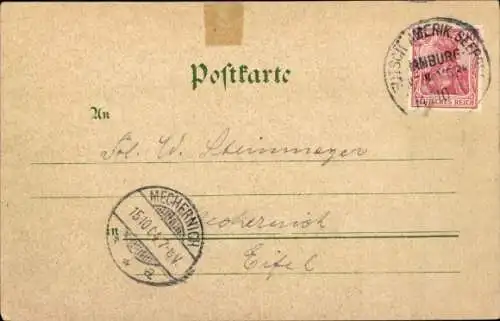 DEUTSCH-AMERIK. SEEPOST
HAMBURG
DEUTSCHES REICH
Postkarte
An
Frl. W. Steinmeyer
MECHERNICH
15.10.04. 7-8V.
* a *
in Mechernich
Eifel